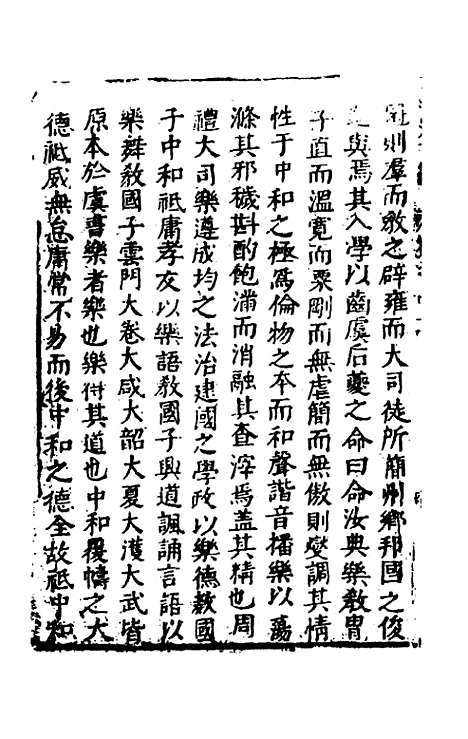 則羣而教之辟雍而大司徒所簡州鄉邦國之俊
與焉其入學以齒虞后夔之命曰命汝典樂教胄
子直而溫寬而栗剛而無虐簡而無傲則變調其情
性于中和之極爲倫物之本而和聲諧音播樂以蕩
滌其邪穢斟酌飽滿而消融其查滓焉蓋其精也周
禮大司樂遵成均之法治建國之學政以樂德教國
子中和祗庸孝友以樂語教國子興道諷誦言語以
樂舞教國子雲門大卷大咸大韶大夏大濩大武皆
原本於虞書樂者樂也樂得其道也中和覆幬之大
德祗威無怠庸常不易而後中和之德全故祗中和